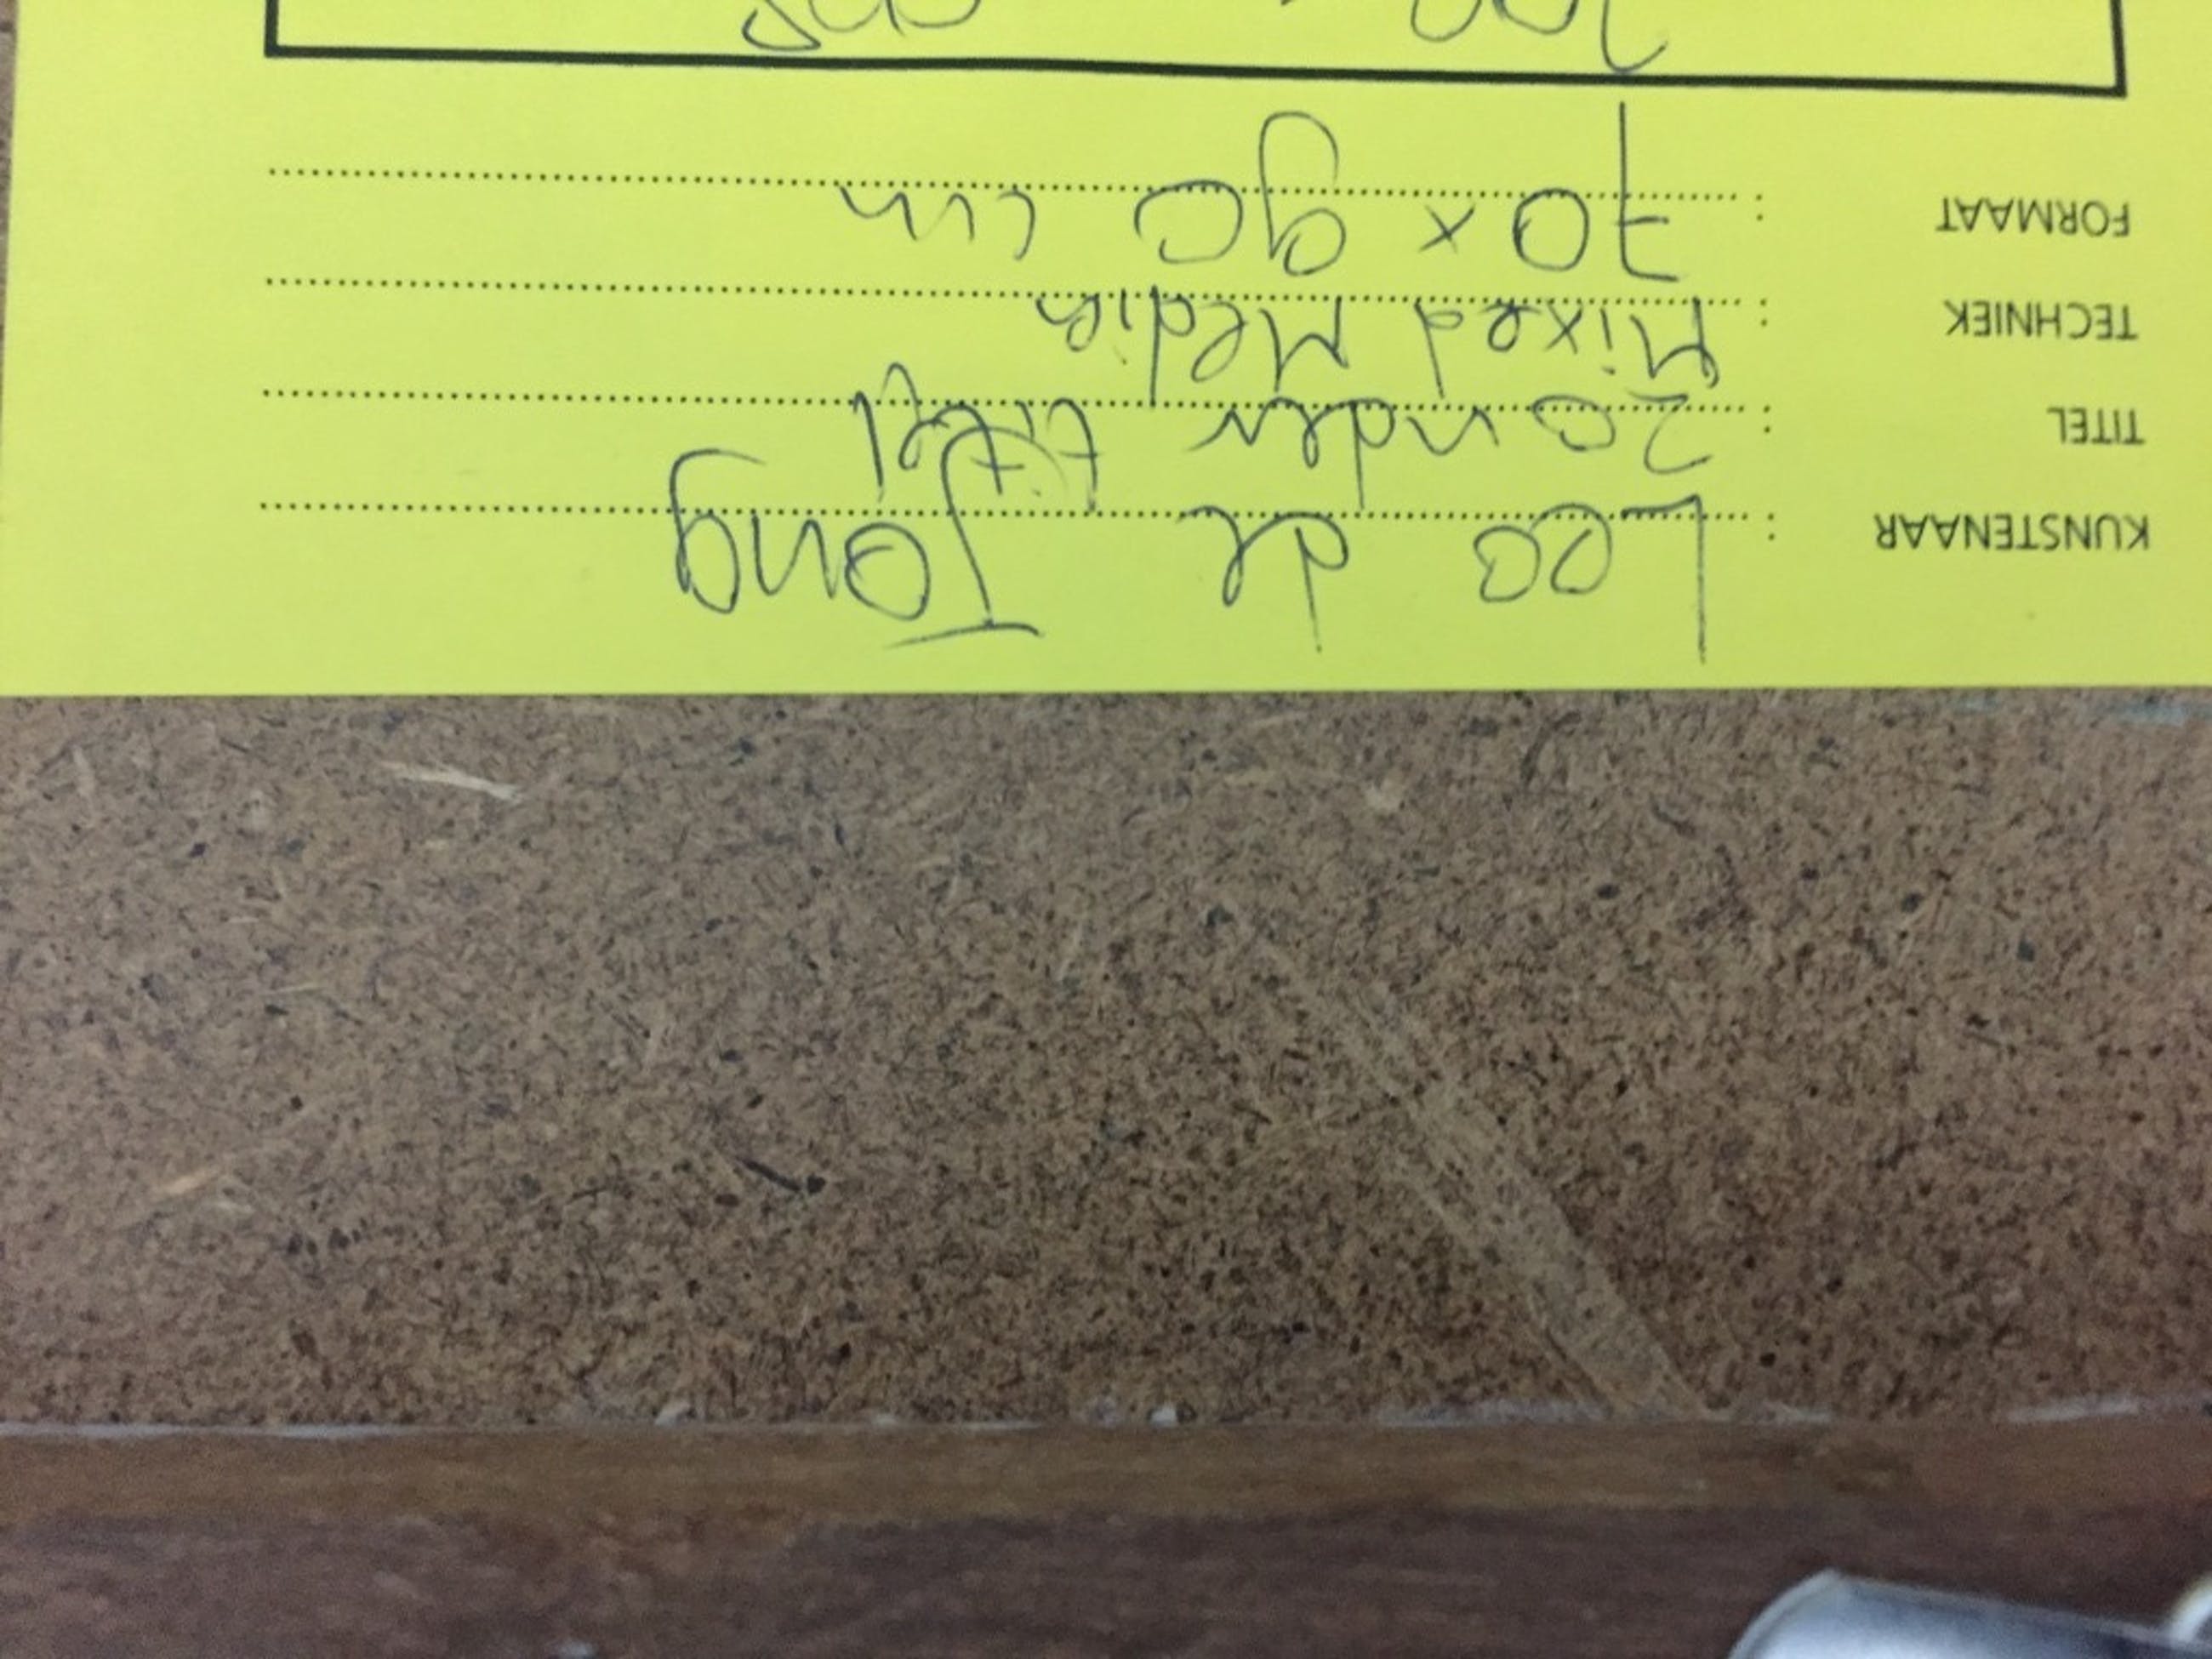 KUNSTENAAR : Leo de Jong
TITEL : zonder titel
TECHNIEK : Mixed Media
FORMAAT : 70 x 90 cm